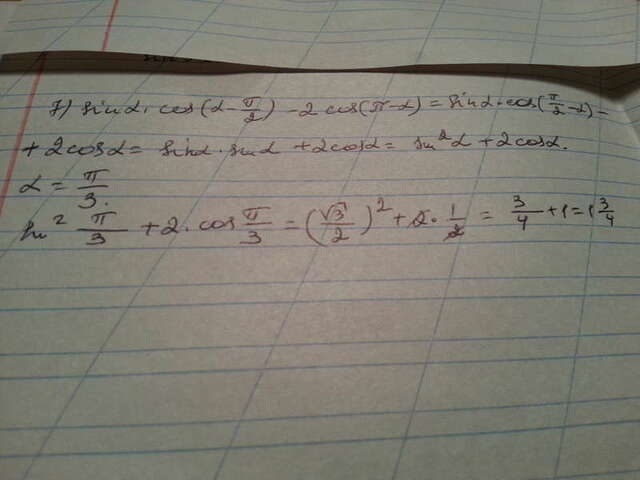 7) sin α · cos(α - π/2) - 2 cos(π - α) = sin α · cos(π/2 - α) -
+ 2 cos α = sin α · sin α + 2 cos α = sin² α + 2 cos α.
α = π/3.
sin² π/3 + 2 · cos π/3 = (√3/2)² + 2 · 1/2 = 3/4 + 1 = 1 3/4